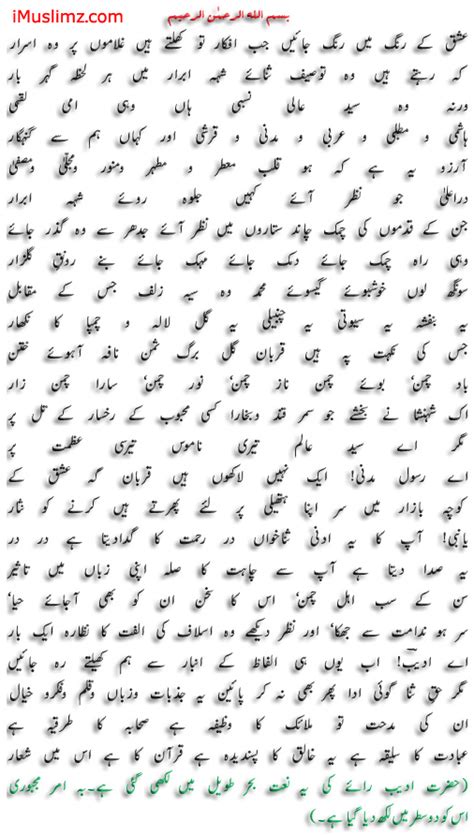 iMuslimz.com
بسم اللہ الرحمٰن الرحیم
عشق کے رنگ میں رنگ جائیں جب افکار تو کھلتے ہیں غلاموں پر وہ اسرار
کہ رہتے ہیں وہ توصیف ثنائے شہہ ابرار میں ہر لحظہ گہر بار
ورنہ وہ سید عالی نسبی ہاں وہی امی لقبی
ہاشمی و مطلبی و عربی و مدنی و قرشی اور کہاں ہم سے گنہگار
آرزو یہ ہے کہ ہو قلب معطر و مطہر ومنور ومجلّیٰ ومصفیٰ
دراعلیٰ جو نظر آئے کہیں جلوہ روئے شہہ ابرار
جن کے قدموں کی چمک چاند ستاروں میں نظر آئے جدھر سے وہ گذر جائے
وہی راہ چمک جائے دمک جائے مہک جائے بنے رونقِ گلزار
سونگھ لوں خوشبوئے گیسوئے محمد وہ سیہ زلف جس کے مقابل
یہ بنفشہ یہ سیوتی یہ چنبیلی یہ گل لالہ و چمپا کا نکھار
جس کی نکہت پہ ہیں قربان گل برگ سمن نافہ آہوئے ختن
باد چمن‘ بوئے چمن ناز چمن‘ نور چمن‘ سارا چمن زار
اک شہنشا نے بخشے جو سمر قند وبخارا کسی محبوب کے رخسار کے تل پر
مگر اے سید عالم تیری ناموس تیرسی عظمت پر
اے رسول مدنی! ایک نہیں لاکھوں ہیں قربان گہ عشق کے
کوچہ بازار میں سر اپنا ہتھیلی پر لئے پھرتے ہیں کرنے کو نثار
یانبی! آپ کا یہ ادنیٰ ثناخواں در رحمت کا گدادیتا ہے در در
یہ صدا دیتا ہے آپ سے چاہت کا صلہ اپنی زباں میں تاثیر
سن کے سب اہل چمن‘ اس کا سخن ان کو بھی آجائے حیا‘
سر ہو ندامت سے جھکا‘ اور نظر دیکھے وہ اسلاف کی الفت کا نظارہ ایک بار
اے ادیبؔ! اب یوں ہی الفاظ کے انبار سے ہم کھیلتے رہ جائیں
مگر حق ثنا گوئی ادا پھر بھی نہ کر پائین یہ جذبات وزباں وقلم وفکرو خیال
ان کی مدحت تو ملائک کا وظیفہ ہے صحابہ کا طرقیہ ہے
عبادت کا سلیقہ ہے یہ خالق کا پسندیدہ ہے قرآن کا ہے اس میں شعار
(حضرت ادیب رائے کی یہ نعت بحر طویل میں لکھی گئی ہے۔ بہ امر مجبوری
اس کو دو سطر میں لکھ دیا گیا ہے۔)